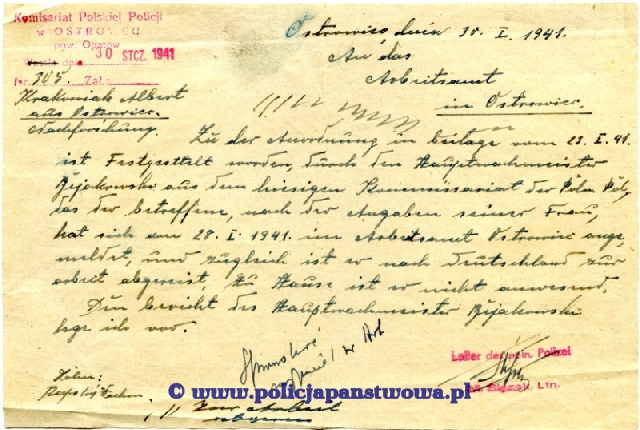 Komisariat Polskiej Policji
w OSTROWCU
pow. Opatów
Weszło dnia 30 STCZ. 1941
Nr. 305. Zał.
Ostrowiec, dnia 30. I. 1941.
An das
Arbeitsamt
in Ostrowiec.
Krakoniak Albert
aus Ostrowiec.
Nachforschung.
Zu der Anordnung in beilage vom 23. I. 41.
ist Festgestellt worden, durch den Hauptwachmeister
Bijakowski aus dem hiesigen Kommissariat der Poln. Pol,
das der betreffene, nach der Angaben seiner Frau,
hat sich am 28. I. 1941. im Arbeitsamt Ostrowiec ange,
meldet, und zugleich ist er nach Deutschland zur
arbeit abgereist, zu Hause ist er nicht anwesend.
Den bericht des Hauptwachmeister Bijakowski
lege ich vor.
Leiter der poln. Polizei
Ltn.
© www.policjapanstwowa.pl
zur Arbeit